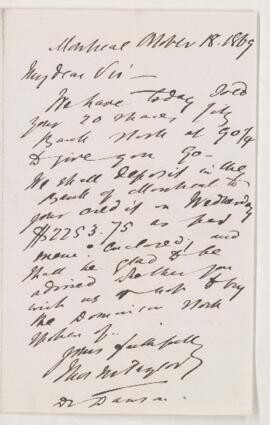 Montreal October 18. 1869
My dear Sir —
We have today sold
your 20 shares City
Bank Stock at 90 1/4
to give you 90 —
We shall deposit in the
Bank of Montreal to
your credit on Wednesday
$2253.75 as per
memo: enclosed, and
shall be glad to be
advised whether you
wish us to buy
the Dominion Stock
spoken of.
Yours faithfully
Thos M Taylor
Dr Dawson